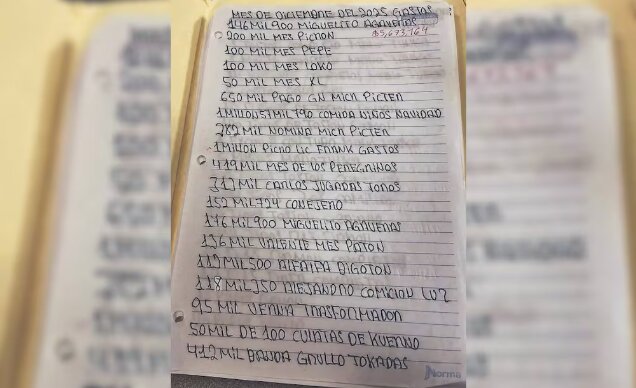 MES DE DICIEMBRE DEL 2025 GASTOS
146 MIL 900 MIGUELITO AGAVERIAS
200 MIL MES PICHON
$5,673,764
100 MIL MES PEPE
100 MIL MES LOKO
50 MIL MES XL
650 MIL PAGO GN MICH PICTER
1 MILLON 57 MIL 790 COMIDA NIÑOS NAVIDAD
282 MIL NOMINA MICH PICTER
1 MILLON PICHO LIC FRANK GASTOS
419 MIL MES DE LOS PEREGRINOS
313 MIL CARLOS JUGADAS TONOS
152 MIL 724 CONEJERO
146 MIL 900 MIGUELITO AGAVERIAS
136 MIL VALIENTE MES PATON
119 MIL 500 ALFALFA BIGOTON
118 MIL 350 ALEJANDRO COMICION LUZ
95 MIL VENNA TRASFORMADOR
50 MIL DE 100 CUIATAS DE KUERNO
412 MIL BANDA GAULLO TOKADAS
Norma